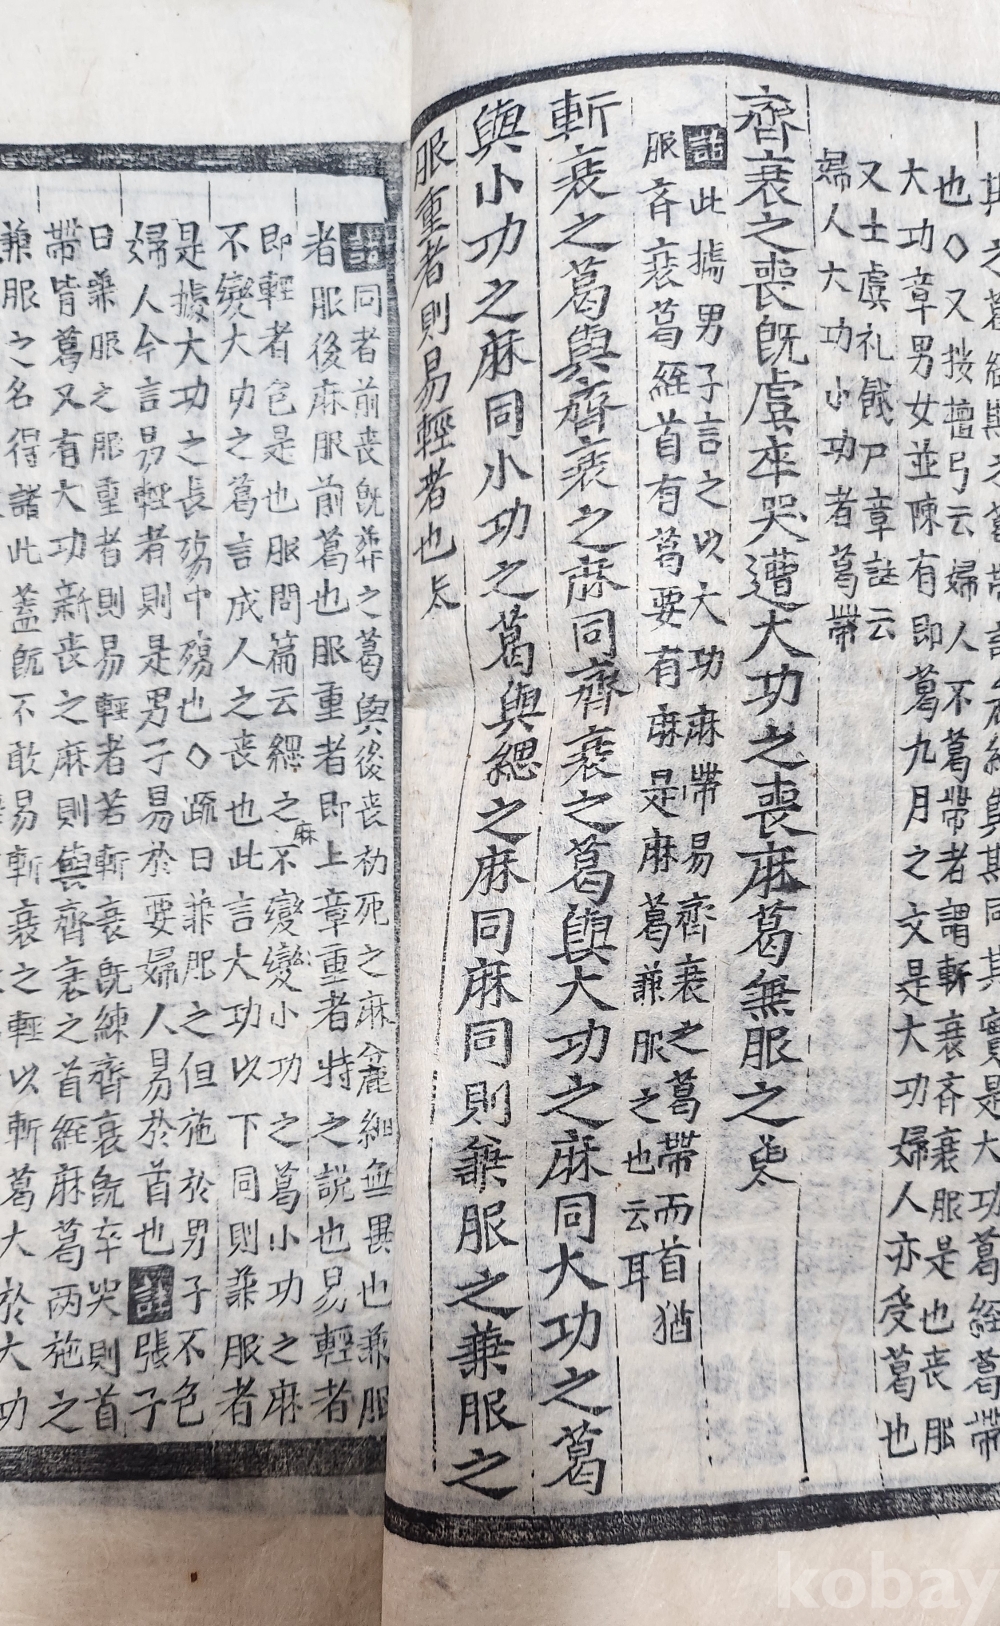 也○又按檀弓云婦人不葛帶者謂斬衰齊衰服是也喪服
大功章男女並陳有即葛九月之文是大功婦人亦受葛也
又士虞礼餞尸章註云
婦人大功小功者葛帶
齊衰之喪旣虞卒哭遭大功之喪麻葛兼服之
註此據男子言之以大功麻帶易齊衰之葛帶而首猶
服斉衰葛絰首有葛要有麻是麻葛兼服之也云耳
斬衰之葛與齊衰之麻同齊衰之葛與大功之麻同大功之葛
與小功之麻同小功之葛與緦之麻同麻同則兼服之兼服之
服重者則易輕者也
註同者前喪旣葬之葛與後喪初死之麻麄細無異也兼服
者服後麻服前葛也服重者即上章重者特之說也易輕者
即輕者包是也服問篇云緦之麻不變小功之葛小功之麻
不變大功之葛言成人之喪也此言大功以下同則兼服者
是據大功之長殤中殤也○疏曰兼服之但施於男子不包
婦人今言易輕者則是男子易於要婦人易於首也詳張子
曰兼服之服重者則易輕者若斬衰旣練齊衰旣卒哭則首
帶皆葛又有大功新喪之麻則與齊衰之首絰麻葛兩施之
兼服之名得諸此蓋旣不敢易斬衰之輕以斬葛大於大功
kobay